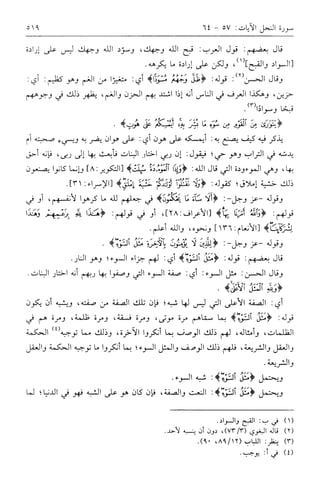 سورة النحل الآيات: ٥٧ - ٦٤ ٥١٩
قال بعضهم: قول العرب: قبح الله وجهك، وسوّد الله وجهك ليس على إرادة
[السواد والقبح](١)، ولكن على إرادة ما يكرهه.
وقال الحسن(٢): قوله: ﴿ظَلَّ وَجْهُهُ مُسْوَدًّا﴾ أي: متغيرًا من الغم وهو كظيم: أي:
حزين، وهكذا العرف في الناس أنه إذا اشتد بهم الحزن والغم، يظهر ذلك في وجوههم
قبحًا وسوادًا(٣).
﴿يَتَوَارَىٰ مِنَ الْقَوْمِ مِن سُوءِ مَا بُشِّرَ بِهِ أَيُمْسِكُهُ عَلَىٰ هُونٍ﴾.
يذكر فيه كيف يصنع به: أيمسكه على هون أي: على هوان يضر به ويسيء صحبته أم
يدسّه في التراب وهو حي؛ فيقول: إن ربي اختار البنات فأبعث بها إلى ربي، فإنه أحق
بها، وهي الموءودة التي قال الله: ﴿وَإِذَا الْمَوْءُودَةُ سُئِلَتْ﴾ [التكوير: ٨] وإنما كانوا يصنعون
ذلك خشية إملاق؛ كقوله: ﴿وَلَا تَقْتُلُوا أَوْلَادَكُمْ خَشْيَةَ إِمْلَاقٍ﴾ [الإسراء: ٣١].
وقوله -عز وجل-: ﴿أَلَا سَاءَ مَا يَحْكُمُونَ﴾ في جعلهم لله ما كرهوا لأنفسهم، أو في
قولهم: ﴿وَاللَّهُ أَمَرَنَا بِهَا﴾ [الأعراف: ٢٨]، أو في قولهم: ﴿هَٰذَا لِلَّهِ بِزَعْمِهِمْ وَهَٰذَا
لِشُرَكَائِنَا﴾ [الأنعام: ١٣٦] ونحوه، والله أعلم.
وقوله -عز وجل-: ﴿لِلَّذِينَ لَا يُؤْمِنُونَ بِالْآخِرَةِ مَثَلُ السَّوْءِ﴾.
قال بعضهم: قوله: ﴿مَثَلُ السَّوْءِ﴾ أي: لهم جزاء السوء؛ وهو النار.
وقال الحسن: مثل السوء: أي: صفة السوء التي وصفوا بها ربهم أنه اختار البنات.
﴿وَلِلَّهِ الْمَثَلُ الْأَعْلَىٰ﴾.
أي: الصفة الأعلى التي ليس لها شبه؛ فإن تلك الصفة من صفته، ويشبه أن يكون
قوله: ﴿مَثَلُ السَّوْءِ﴾ بما سماهم مرة موتى، ومرة فسقة، ومرة ظلمة، ومرة هم في
الظلمات، وأمثاله، لهم ذلك الوصف بما أنكروا الآخرة، وذلك مما توجبه(٤) الحكمة
والعقل والشريعة، فلهم ذلك الوصف والمثل السوء؛ بما أنكروا ما توجبه الحكمة والعقل
والشريعة.
ويحتمل ﴿مَثَلُ السَّوْءِ﴾: شبه السوء.
ويحتمل ﴿مَثَلُ السَّوْءِ﴾: النعت والصفة، فإن كان هو على الشبه فهو في الدنيا؛ لما
(١) في ب: القبح والسواد.
(٢) قاله البغوي (٧٣/٣)، دون أن ينسبه لأحد.
(٣) ينظر: اللباب (٨٩/١٢، ٩٠).
(٤) في أ: يوجب.